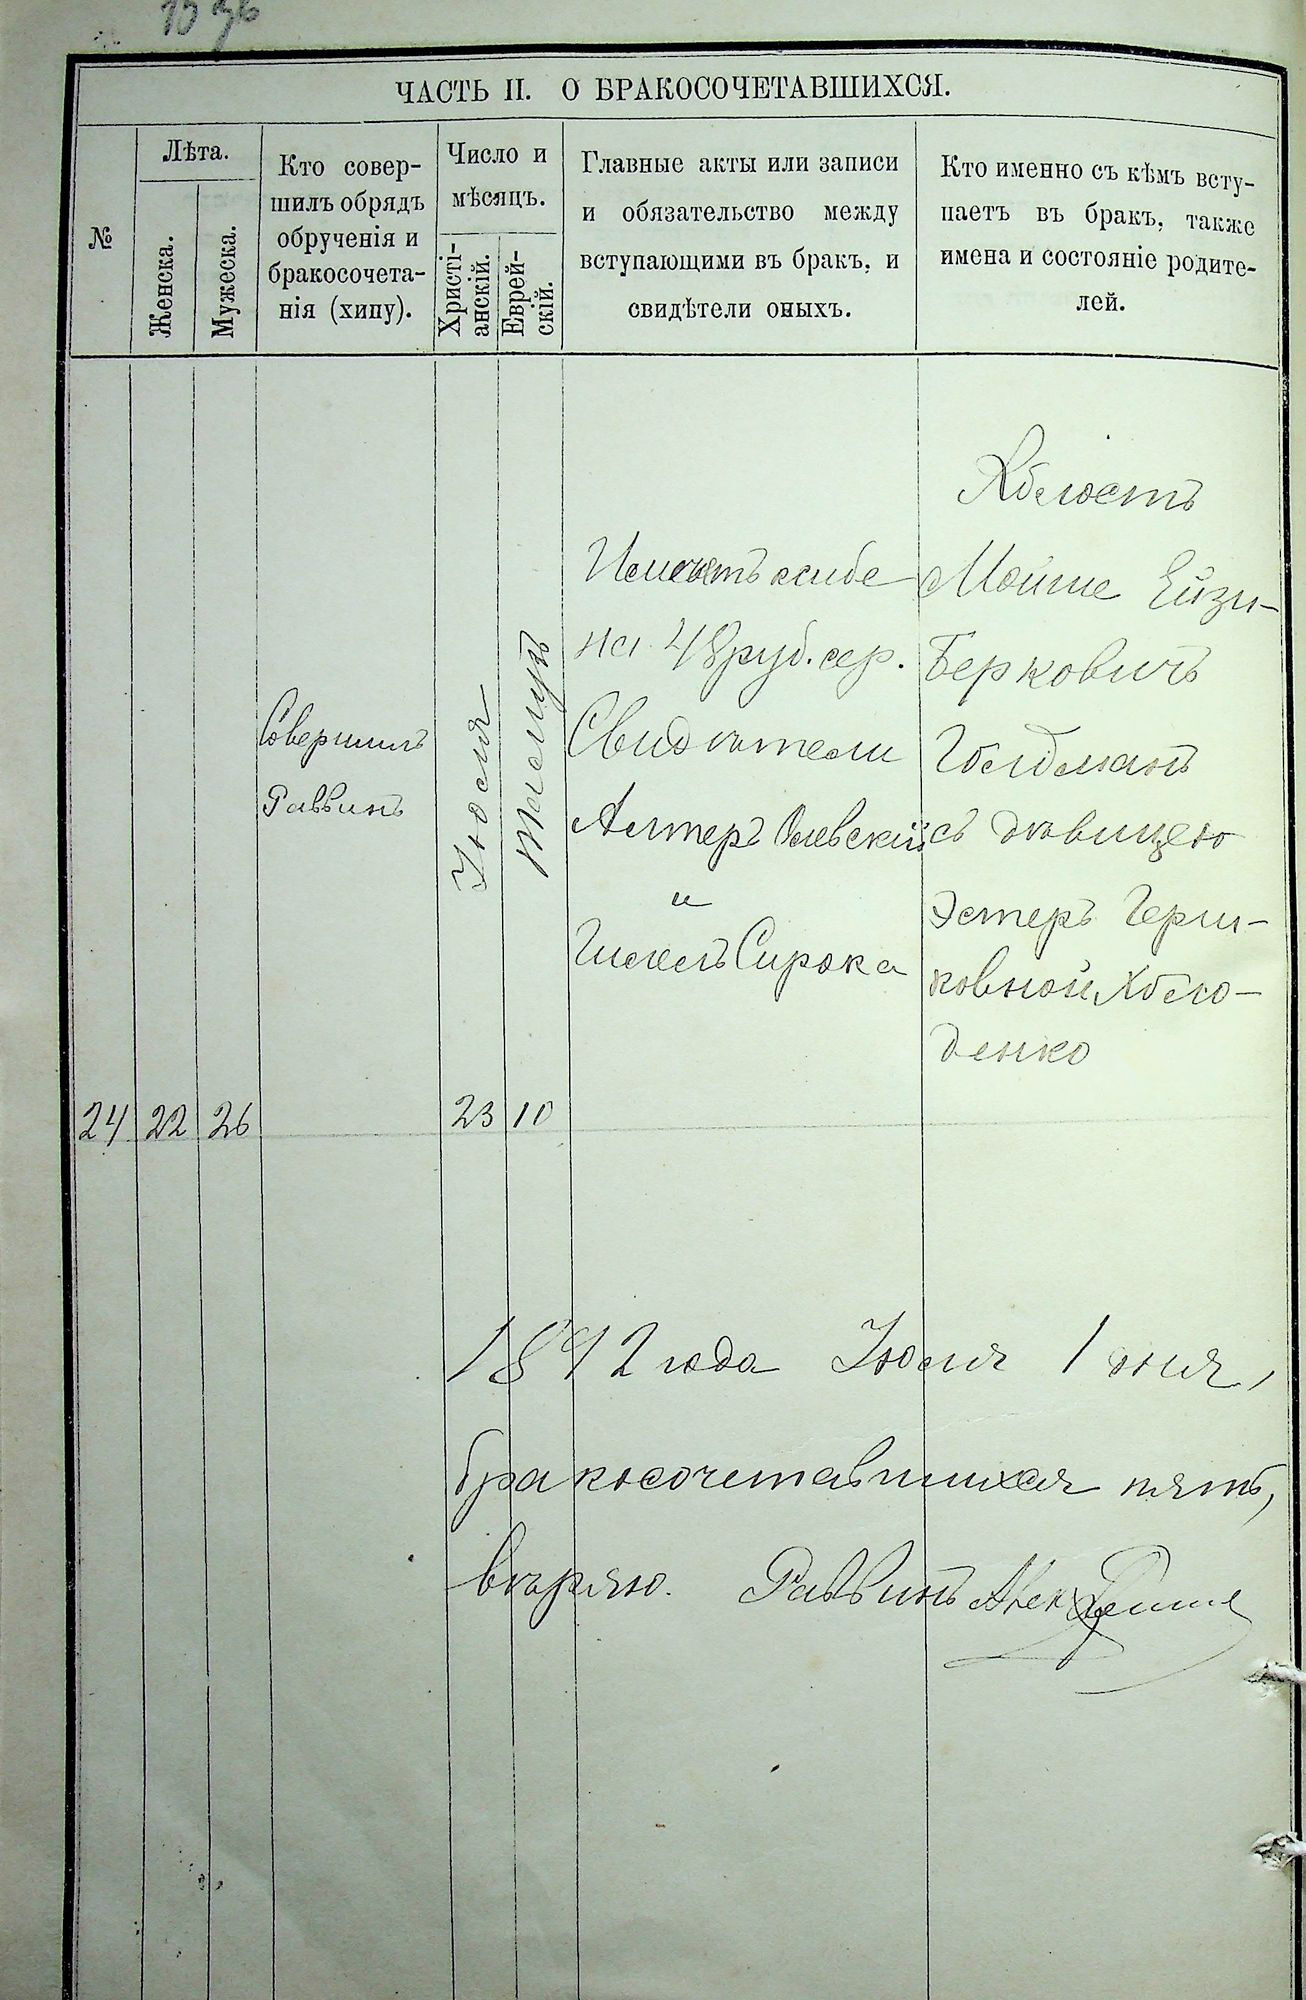 ЧАСТЬ II. О БРАКОСОЧЕТАВШИХСЯ.
№
Лѣта.
Женска.
Мужеска.
Кто совер-
шилъ обрядъ
обрученія и
бракосочета-
нія (хипу).
Число и
мѣсяцъ.
Христі-
анскій.
Еврей-
скій.
Главные акты или записи
и обязательство между
вступающими въ бракъ, и
свидѣтели оныхъ.
Кто именно съ кѣмъ всту-
паетъ въ бракъ, также
имена и состояніе родите-
лей.
24
22
26
Совершилъ
Раввинъ
Іюля
23
10
на 48 руб. сер.
Свидѣтели
Алтеръ Олевскій
и
Сирока
Холостъ
Мойше Ейзи-
Берковичъ
Гольдманъ
съ дѣвицею
Эстеръ Герш-
ковной
денко
1892 года Іюля 1 дня,
бракосочетавшихся пять,
вѣряю. Раввинъ